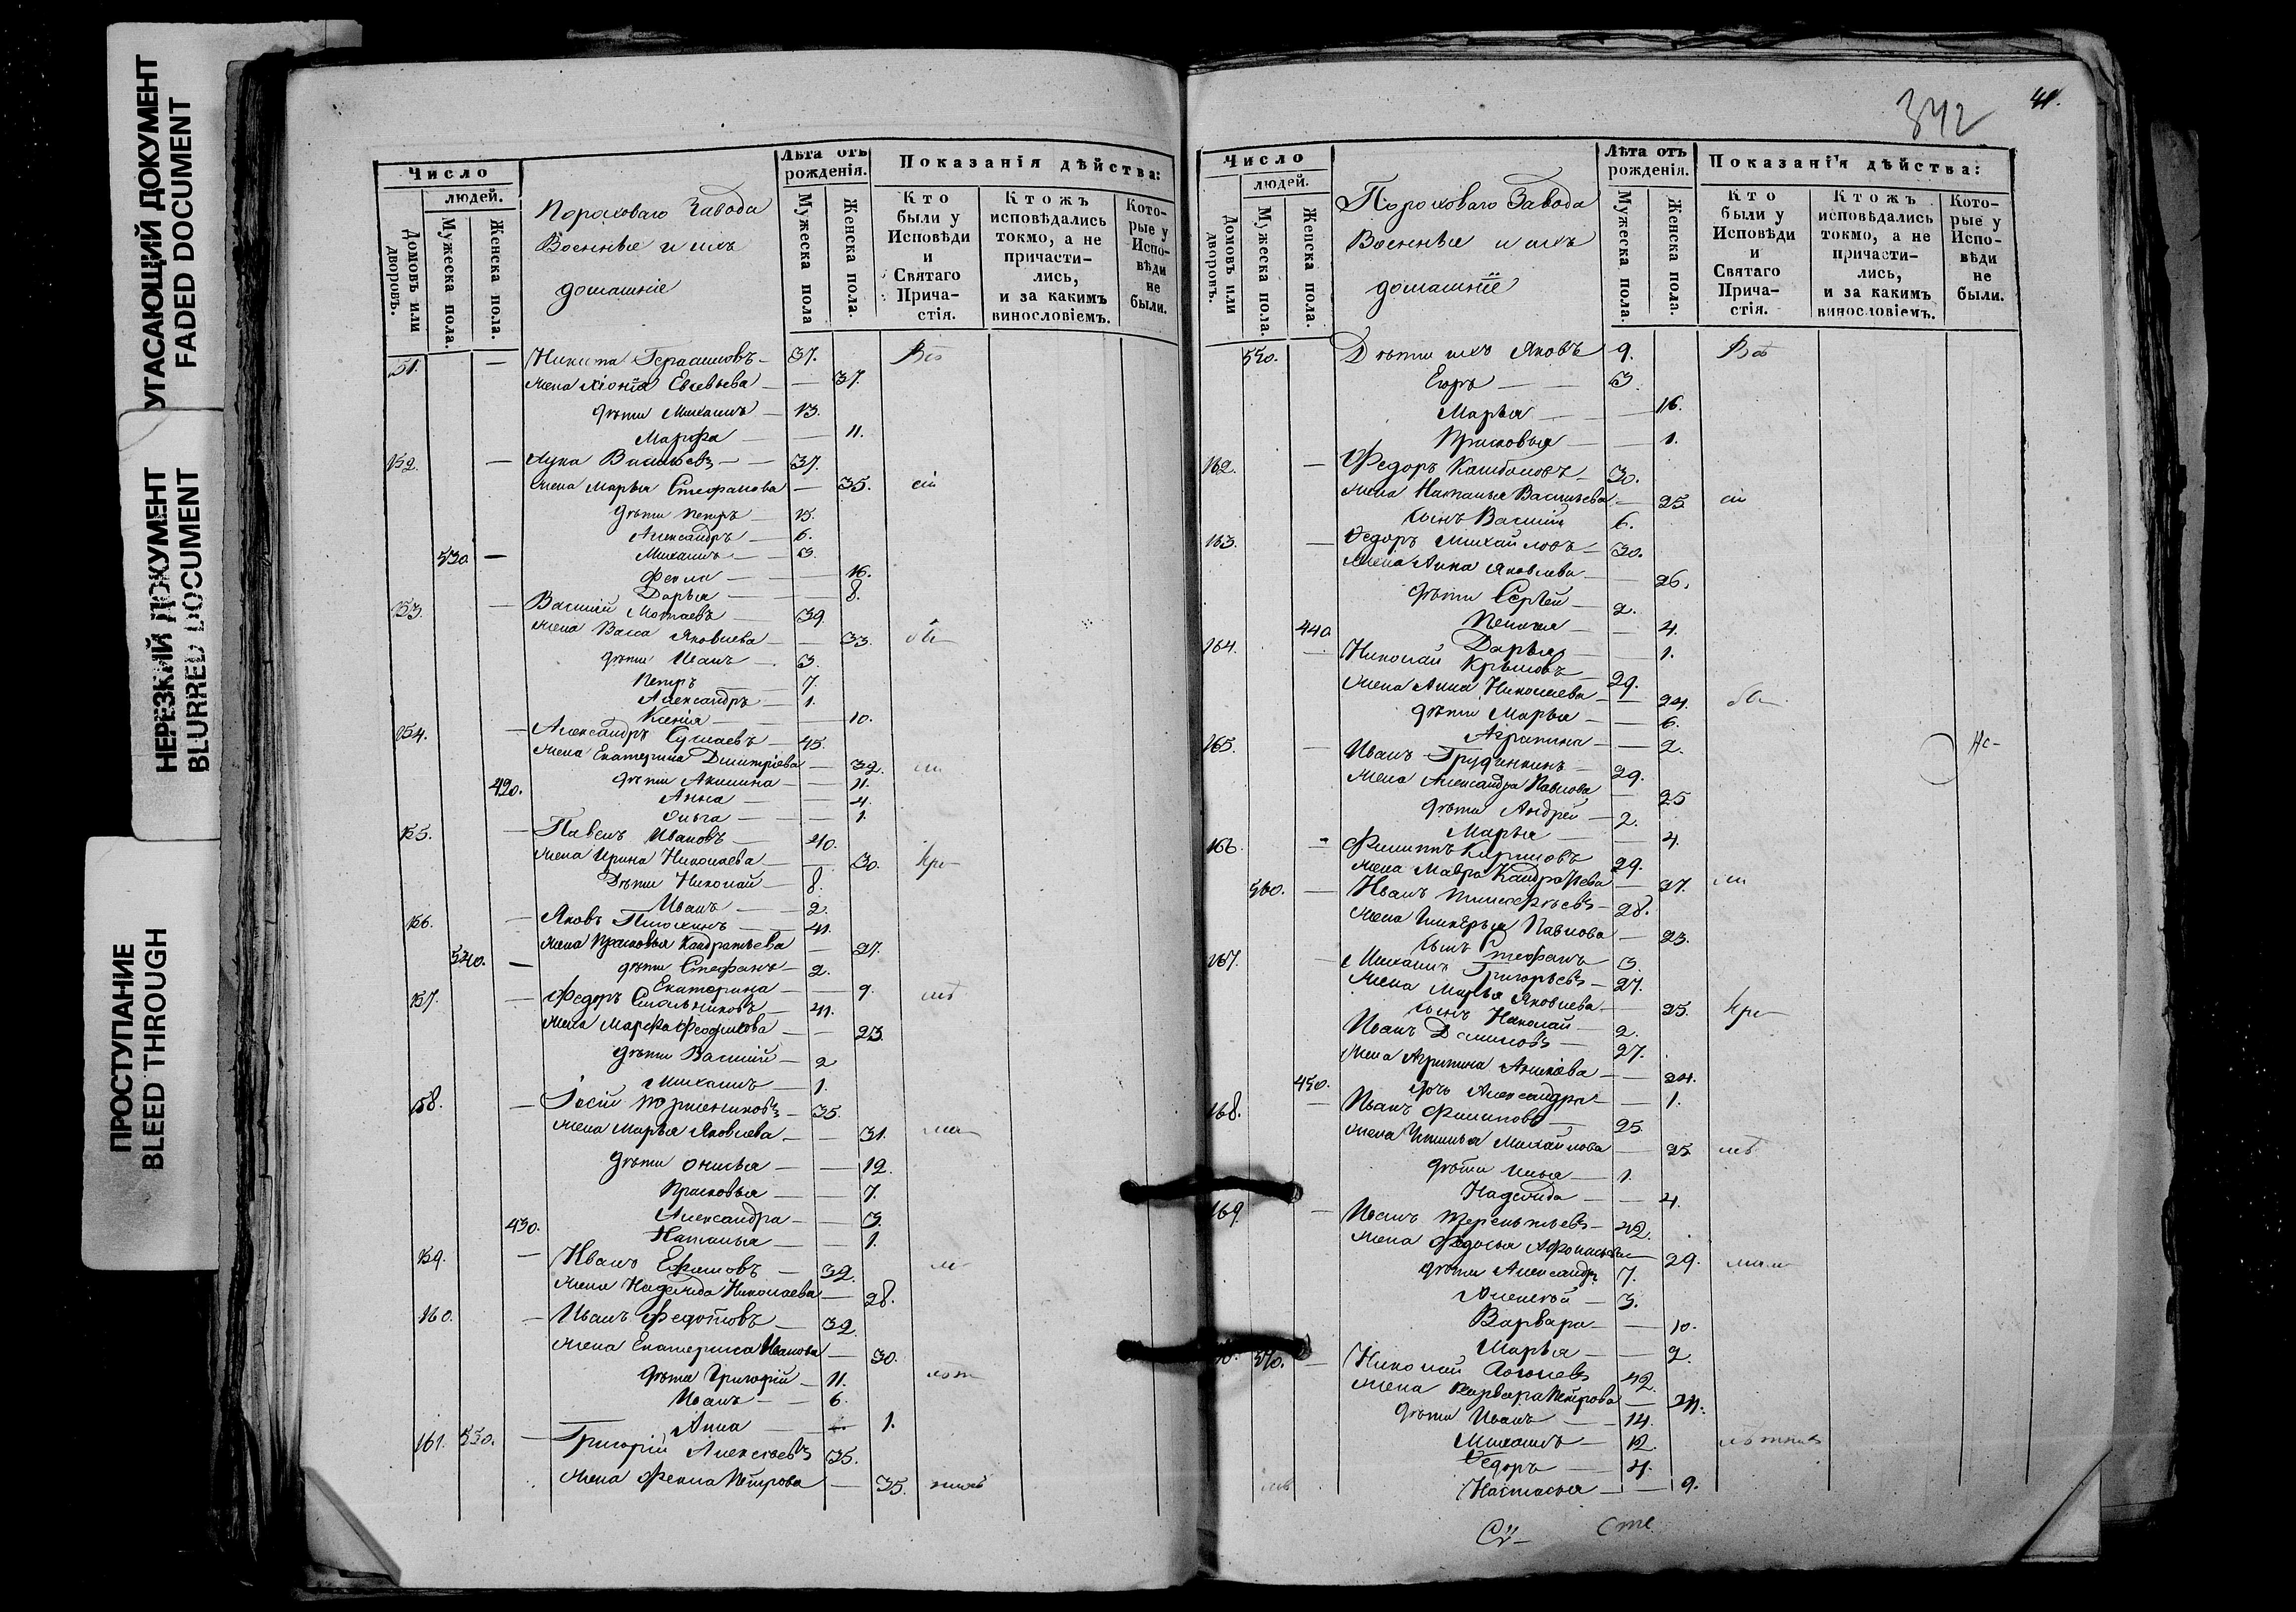 УГАСАЮЩИЙ ДОКУМЕНТ
FADED DOCUMENT
НЕРЕЗКИЙ ДОКУМЕНТ
BLURRED DOCUMENT
ПРОСТУПАНИЕ
BLEED THROUGH
Число
людей.
Домовъ или дворовъ.
Мужеска пола.
Женска пола.
Пороховаго Завода
Военные и ихъ
домашніе
Лѣта отъ рожденія.
Мужеска пола
Женска пола.
Показанія дѣйства:
Кто были у Исповѣди и Святаго Прича-стія.
Ктожъ исповѣдались токмо, а не причасти-лись, и за какимъ винословіемъ.
Кото-рые у Испо-вѣди не были.
151. — Никита Герасимовъ — 37.
жена Хіонія Евсевьева — — 37.
дѣти Михаилъ — 13.
Марфа — — 11.
152. — Лука Васильевъ — 37.
жена Марья Стефанова — 35.
дѣти Петръ — 15.
Александръ — 6.
530. — Михаилъ — 3.
Фекла — — 16.
Дарья — — 8.
153. — Василій Мотаевъ — 39.
жена Васса Яковлева — — 33.
дѣти Иванъ — 3.
Петръ — 7.
Александръ — 1.
Ксенія — — 10.
154. — Александръ — 45.
жена Екатерина Димитріева — 32.
420. дѣти Акилина — — 11.
Анна — — 4.
Ольга — — 1.
155. — Павелъ Ивановъ — 40.
жена Ирина Николаева — — 30.
Дѣти Николай — 8.
Иванъ — 2.
156. — Яковъ — 41.
жена Прасковья Кандратьева — 27.
540. — дѣти Стефанъ — 2.
Екатерина — — 9.
157. — Федоръ — 41.
жена Марфа — — 23.
дѣти Василій — 2
Михаилъ — 1.
158. — — 35.
жена Марья Яковлева — — 31.
дѣти Онисья — — 12.
Прасковья — — 7.
Александра — — 3.
430. Наталья — — 1.
159. — Иванъ Ефимовъ — 32.
жена Надежда Николаева — 28.
160. — Иванъ Федотовъ — 32.
жена Екатерина Иванова — 30.
дѣти Григорій — 11.
Иванъ — 6.
Анна — 1.
161. 550. — Григорій Алексѣевъ 35.
жена Фекла Петрова — 35.
342
41.
Число
людей.
Домовъ или дворовъ.
Мужеска пола.
Женска пола.
Пороховаго Завода
Военные и ихъ
домашніе
Лѣта отъ рожденія.
Мужеска пола.
Женска пола.
Показанія дѣйства:
Кто были у Исповѣди и Святаго Прича-стія.
Ктожъ исповѣдались токмо, а не причасти-лись, и за какимъ винословіемъ.
Кото-рые у Испо-вѣди не были.
Дѣти ихъ Яковъ 9.
Егоръ — 3.
Марья — — 16.
Прасковья — — 1.
162. — Федоръ — 30.
жена Наталья Васильева — 25.
сынъ Василій 6.
163. — Федоръ Михайловъ — 30.
жена Анна Яковлева — — 26.
дѣти Сергѣй — 2.
Пелагея — — 4.
440. Дарья — — 1.
164. — Николай Крыловъ — 29.
жена Анна Николаева — — 24.
дѣти Марья — — 6.
Агрипина — — 2.
165. — Иванъ Грудинкинъ — 29.
жена Александра Павлова — 25
дѣти Андрей — 2.
Марья — 4.
166. — Филиппъ Кириловъ 29.
жена Мавра Кандратьева — 27.
560. — Иванъ Тимофѣевъ — 28.
жена Павлова — 23.
сынъ Стефанъ 3.
167. Михаилъ Григорьевъ — 27.
жена Марья Яковлева — 25.
сынъ Николай — 2.
Иванъ — 27.
жена Агрипина — — 24.
450. дочь Александра — — 1.
168. — Иванъ Филиповъ — 25.
жена Михайлова — 25.
дѣти Илья — 1.
Надежда — — 4.
169. — Иванъ Терентьевъ — 42.
жена Федосья — 29.
дѣти Александръ 7.
Алексѣй — 3.
Варвара — — 10.
Марья — — 2.
570. — Николай 42.
жена Варвара Петрова — 34.
дѣти Иванъ — 14.
Михаилъ — 12.
Федоръ — 4.
Настасья — — 9.